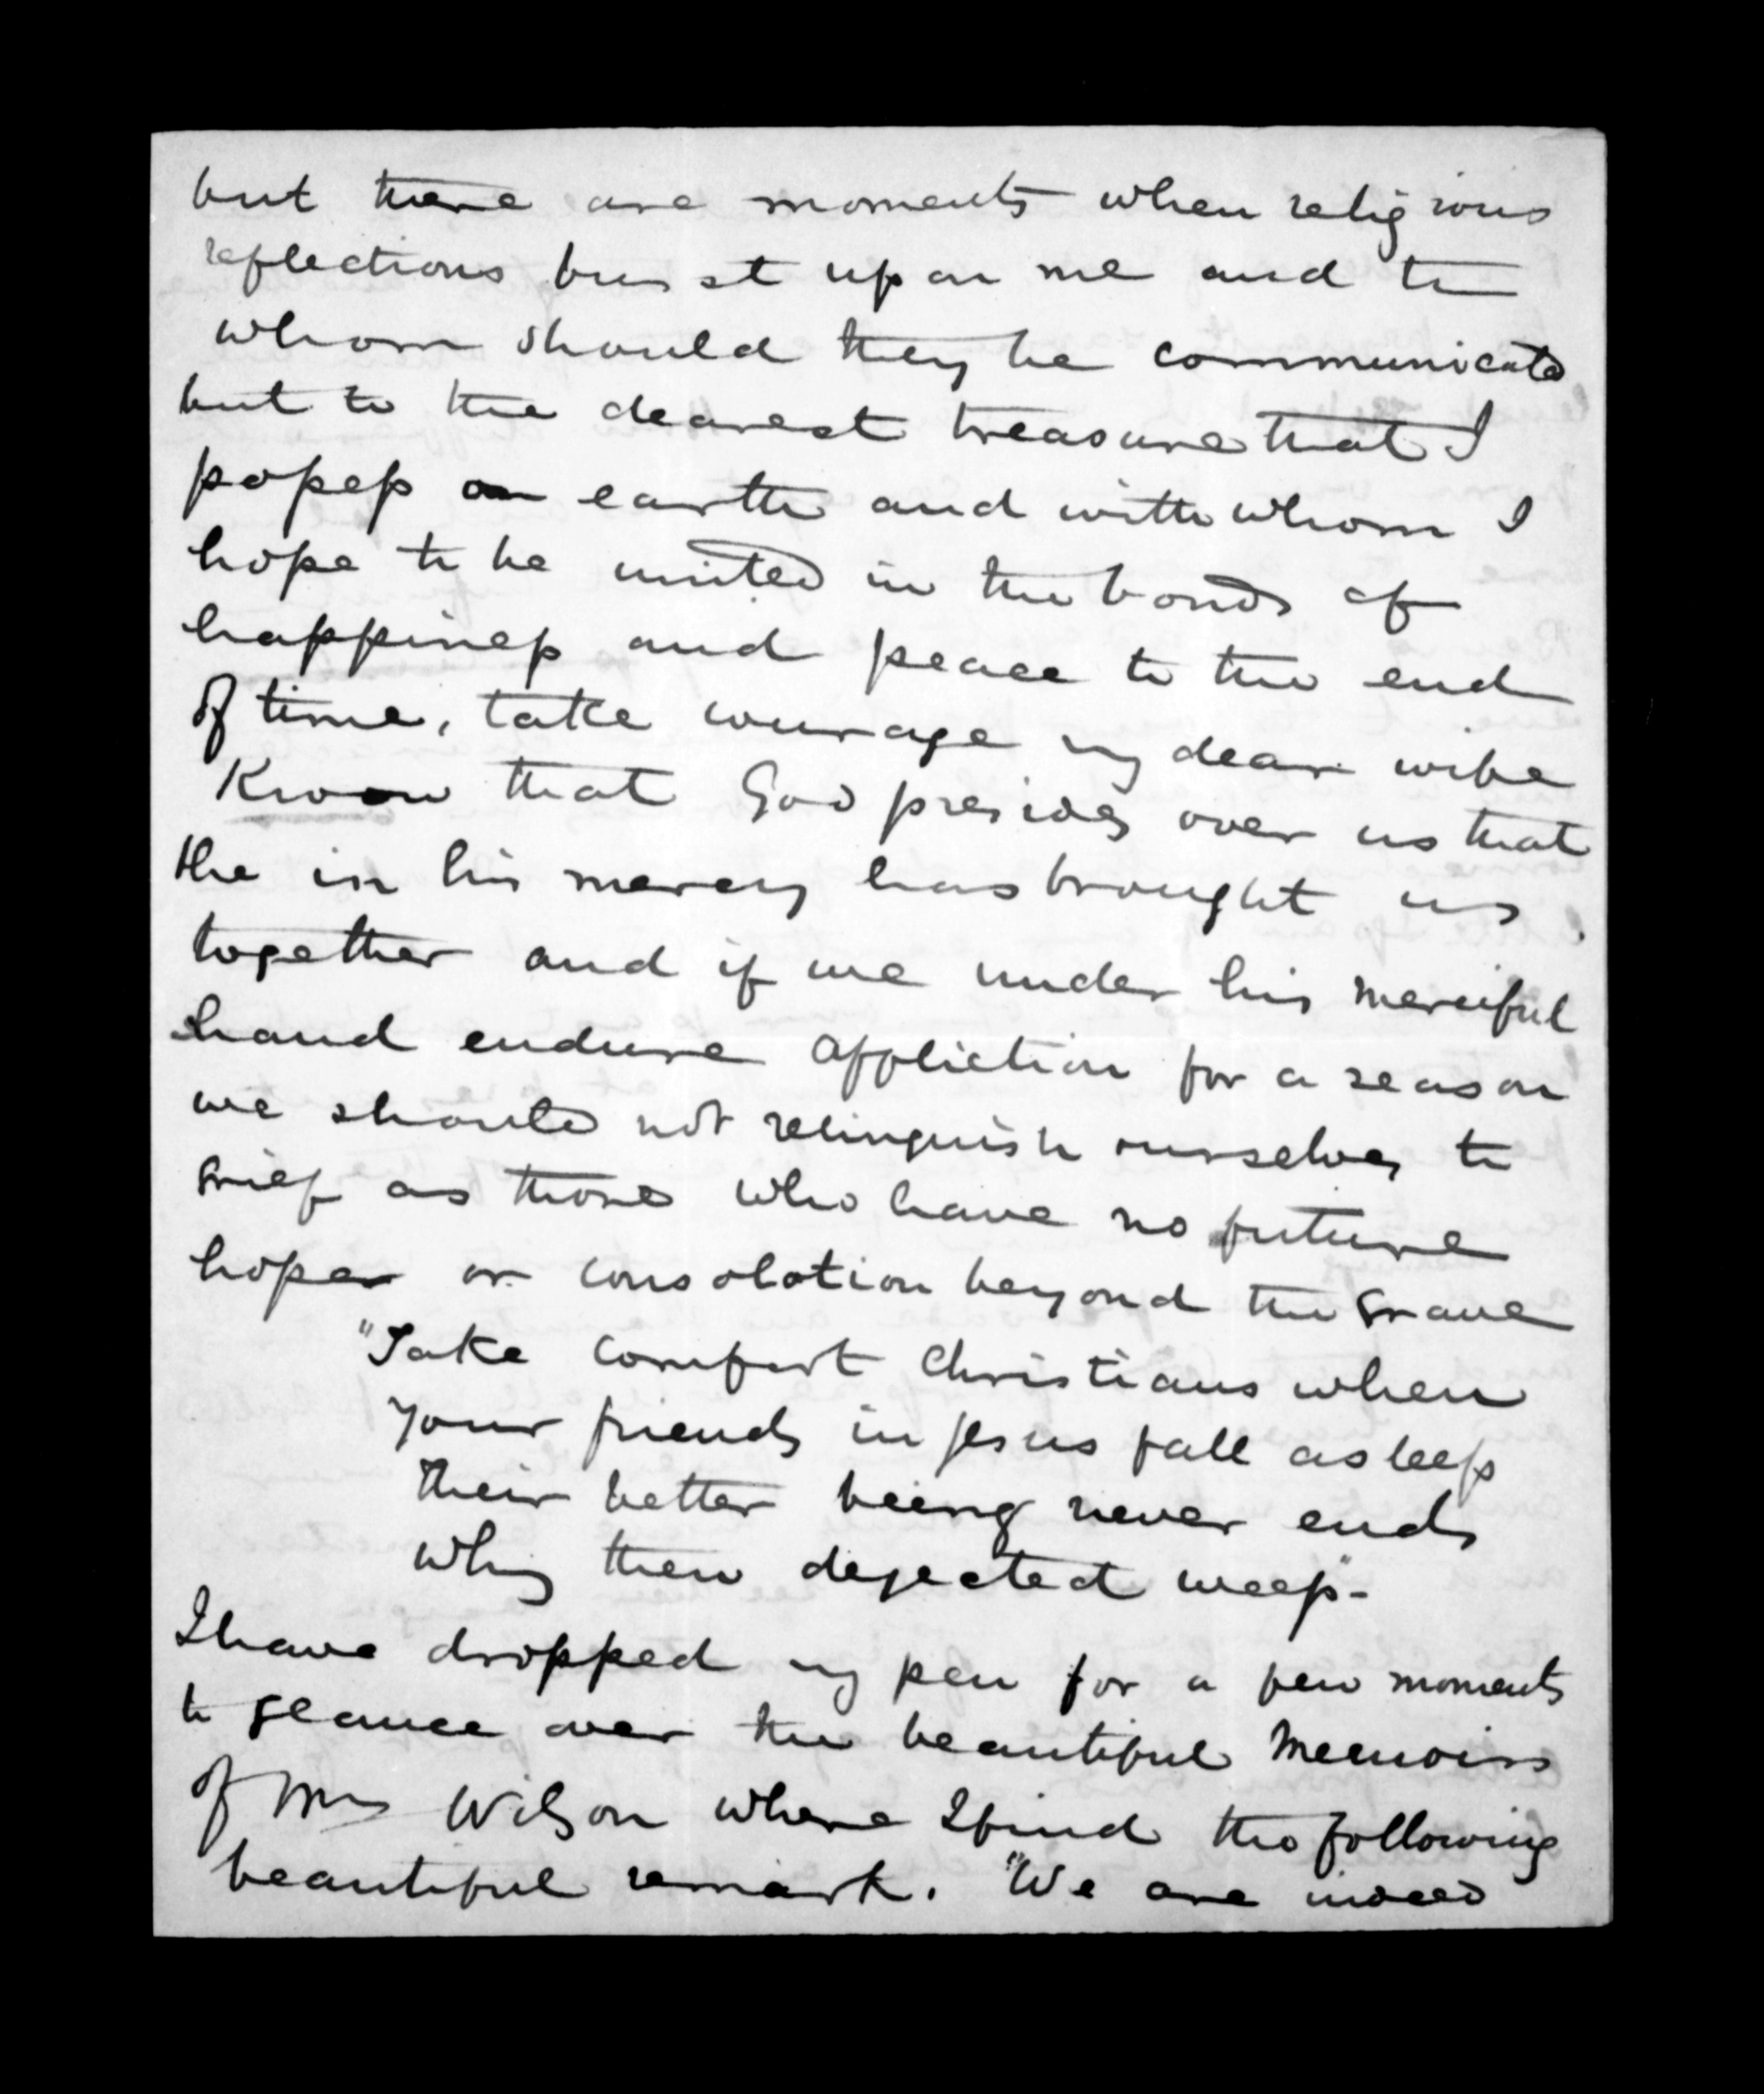 but there are moments when religious
reflections burst upon me and to
whom should they be communicated
but to the dearest treasure that I
possess on earth and with whom I
hope to be united in the bonds of
happiness and peace to the end
of time, take courage my dear wife
Know that God presides over us that
He in his mercy has brought us
together and if we under his merciful
hand endure affliction for a season
we should not relinquish ourselves to
grief as those who have no future
hoper or consolation beyond the grave
"Take comfort Christians when
your friends in Jesus fall asleep
Their better being never ends
Why then dejected weep"
I have dropped my pen for a few moments
to glance over the beautiful Memoirs
of Mrs Wilson where I find the following
beautiful remark. "We are indeed